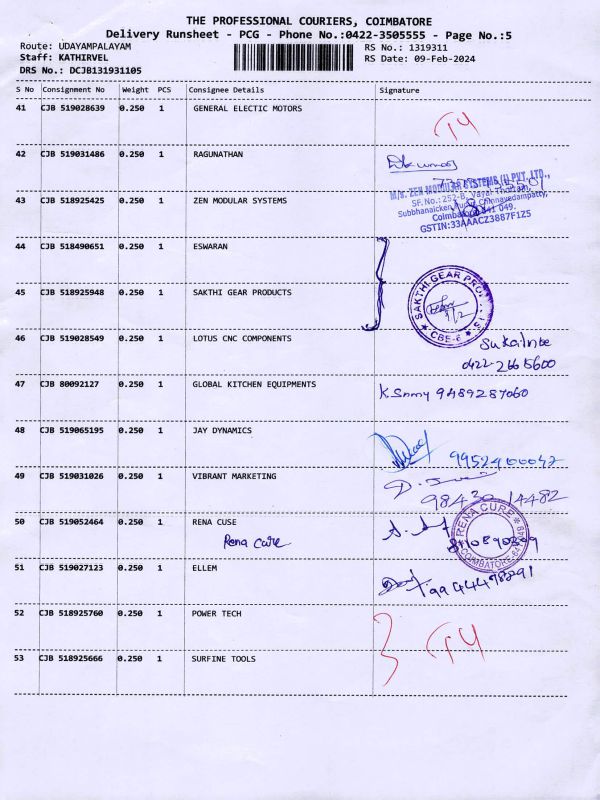 THE PROFESSIONAL COURIERS, COIMBATORE
Delivery Runsheet - PCG - Phone No.:0422-3505555 - Page No.:5
Route: UDAYAMPALAYAM RS No.: 1319311
Staff: KATHIRVEL RS Date: 09-Feb-2024
DRS No.: DCJB131931105
S No Consignment No Weight PCS Consignee Details Signature
41 CJB 519028639 0.250 1 GENERAL ELECTIC MOTORS
42 CJB 519031486 0.250 1 RAGUNATHAN
M/s. ZEN MODULAR SYSTEMS (I) PVT. LTD.,
43 CJB 518925425 0.250 1 ZEN MODULAR SYSTEMS
SF. No.: 252-B, Vayal Thottam,
Subbhanaicken Pudur, Chinnavedampatty,
Coimbatore 641 049.
GSTIN:33AAACZ3887F1Z5
44 CJB 518490651 0.250 1 ESWARAN
45 CJB 518925948 0.250 1 SAKTHI GEAR PRODUCTS
SAKTHI GEAR PRODUCTS
CBE-6
46 CJB 519028549 0.250 1 LOTUS CNC COMPONENTS
0422-2665600
47 CJB 80092127 0.250 1 GLOBAL KITCHEN EQUIPMENTS 9489287060
48 CJB 519065195 0.250 1 JAY DYNAMICS
49 CJB 519031026 0.250 1 VIBRANT MARKETING
98430 14482
50 CJB 519052464 0.250 1 RENA CUSE
Rena Cure
RENA CURE
51 CJB 519027123 0.250 1 ELLEM
52 CJB 518925760 0.250 1 POWER TECH
53 CJB 518925666 0.250 1 SURFINE TOOLS